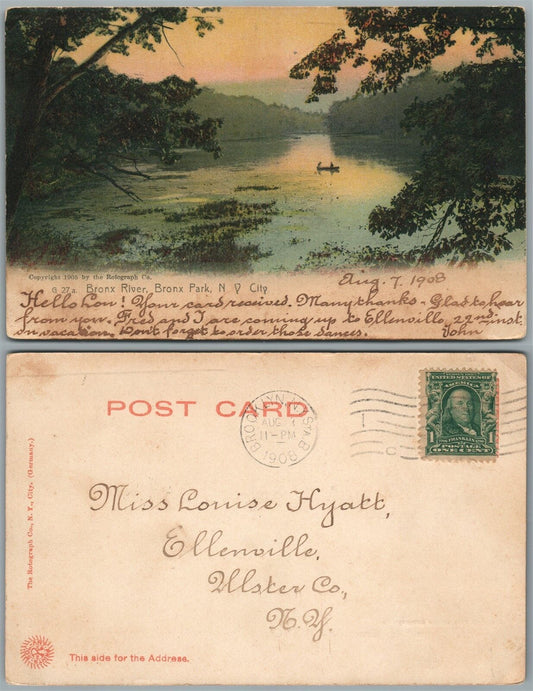 Copyright 1905 by the Rotograph Co.
G 27a. Bronx River, Bronx Park, N. Y City
Aug. 7, 1908
Hello Lou! Your card received. Many thanks - Glad to hear
from you. Fred and I are coming up to Ellenville, 22nd inst.
on vacation. Don't forget to order those dances. John
POST CARD
BROOKLYN, N.Y. STA. B
AUG 7
11-PM
1908
UNITED STATES OF AMERICA
FRANKLIN
1 POSTAGE 1
ONE CENT
Miss Louise Hyatt,
Ellenville,
Ulster Co.,
N.Y.
The Rotograph Co., N. Y., City. (Germany.)
This side for the Address.